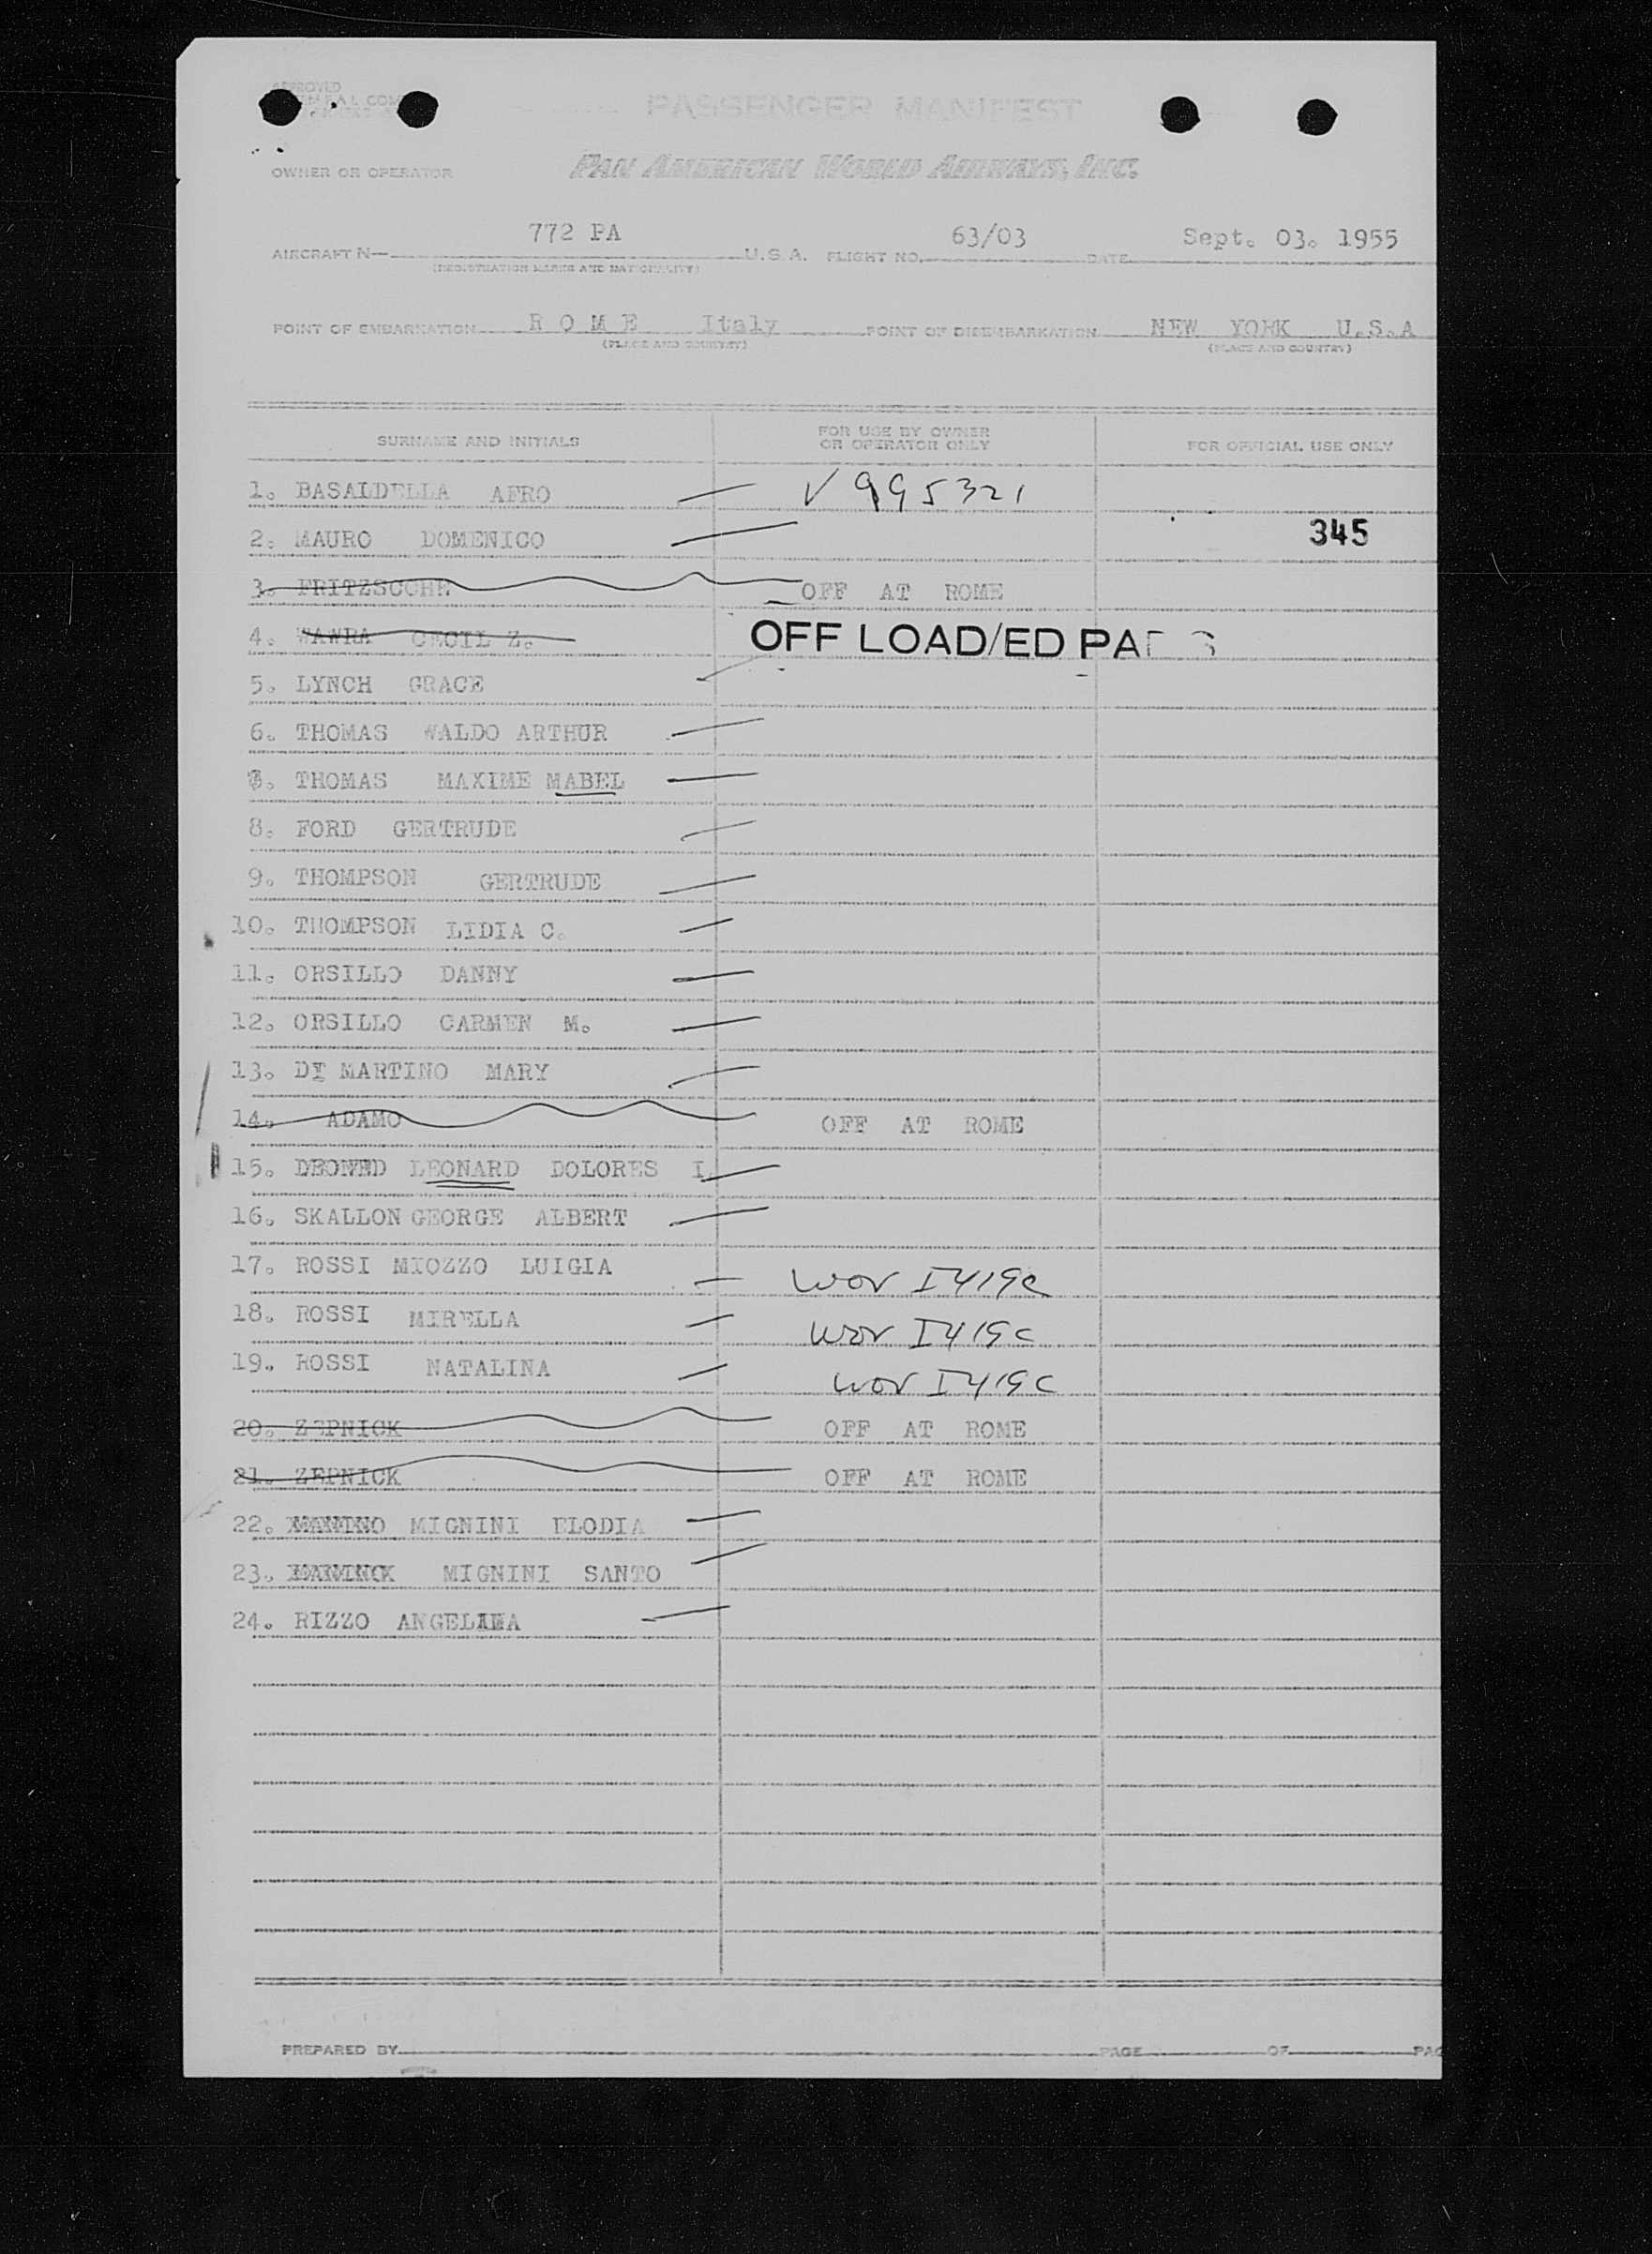 APPROVED
PASSENGER MANIFEST
OWNER OR OPERATOR PAN AMERICAN WORLD AIRWAYS, INC.
AIRCRAFT N— 772 PA U.S.A. FLIGHT NO. 63/03 DATE Sept. 03. 1955
(REGISTRATION MARKS AND NATIONALITY)
POINT OF EMBARKATION R O M E Italy POINT OF DISEMBARKATION NEW YORK U.S.A
(PLACE AND COUNTRY) (PLACE AND COUNTRY)
SURNAME AND INITIALS FOR USE BY OWNER OR OPERATOR ONLY FOR OFFICIAL USE ONLY
1. BASALDELLA AFRO V 995321
2. MAURO DOMENICO 345
3. FRITZSCCHE OFF AT ROME
4. WAWRA CECIL Z. OFF LOAD/ED PA
5. LYNCH GRACE
6. THOMAS WALDO ARTHUR
7. THOMAS MAXIME MABEL
8. FORD GERTRUDE
9. THOMPSON GERTRUDE
10. THOMPSON LIDIA C.
11. ORSILLO DANNY
12. ORSILLO CARMEN M.
13. DI MARTINO MARY
14. ADAMO OFF AT ROME
15. LEONARD DOLORES I.
16. SKALLON GEORGE ALBERT
17. ROSSI MIOZZO LUIGIA WOV I419c
18. ROSSI MIRELLA WOV I419c
19. ROSSI NATALINA WOV I419c
20. ZEPNICK OFF AT ROME
21. ZEPNICK OFF AT ROME
22. MIGNINI ELODIA
23. MIGNINI SANTO
24. RIZZO ANGELINA
PREPARED BY PAGE OF